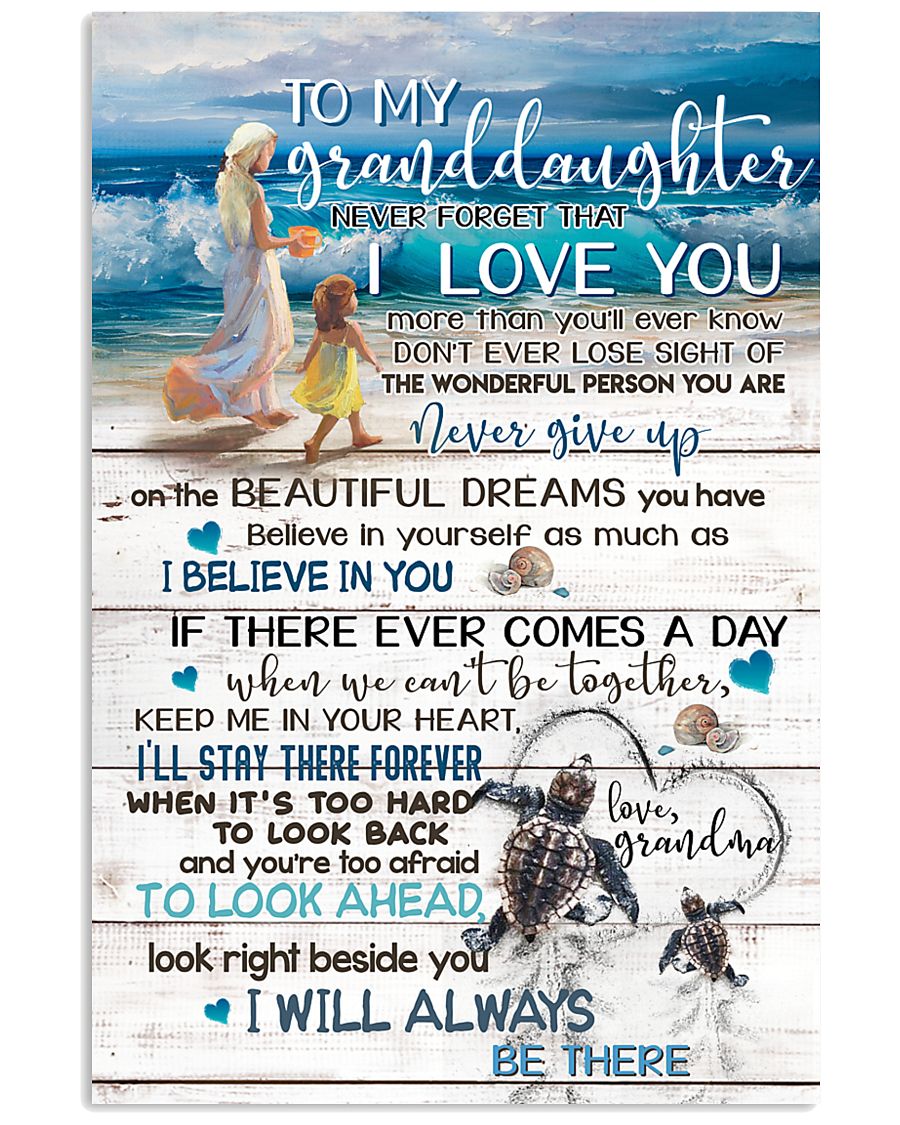 TO MY
granddaughter
NEVER FORGET THAT
I LOVE YOU
more than you'll ever know
DON'T EVER LOSE SIGHT OF
THE WONDERFUL PERSON YOU ARE
Never give up
on the BEAUTIFUL DREAMS you have
Believe in yourself as much as
I BELIEVE IN YOU
IF THERE EVER COMES A DAY
when we can't be together,
KEEP ME IN YOUR HEART,
I'LL STAY THERE FOREVER
WHEN IT'S TOO HARD
TO LOOK BACK
and you're too afraid
TO LOOK AHEAD,
look right beside you
I WILL ALWAYS
BE THERE
love,
grandma